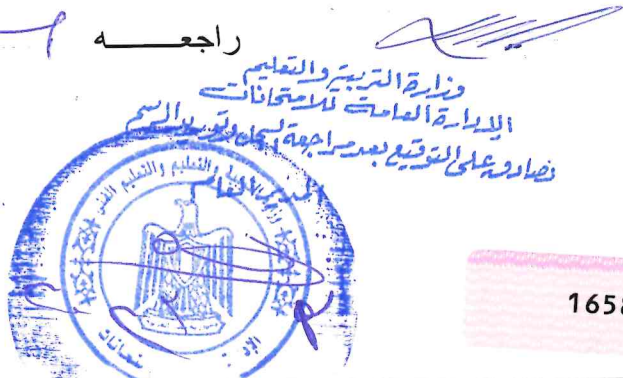 راجعـــــه
وزارة التربية والتعليم
الإدارة العامة للامتحانات
نصادق على التوقيع بعد مراجعة السجل وتوريد الرسم
المدير العام
والتعليم والتعليم الفنى
1658